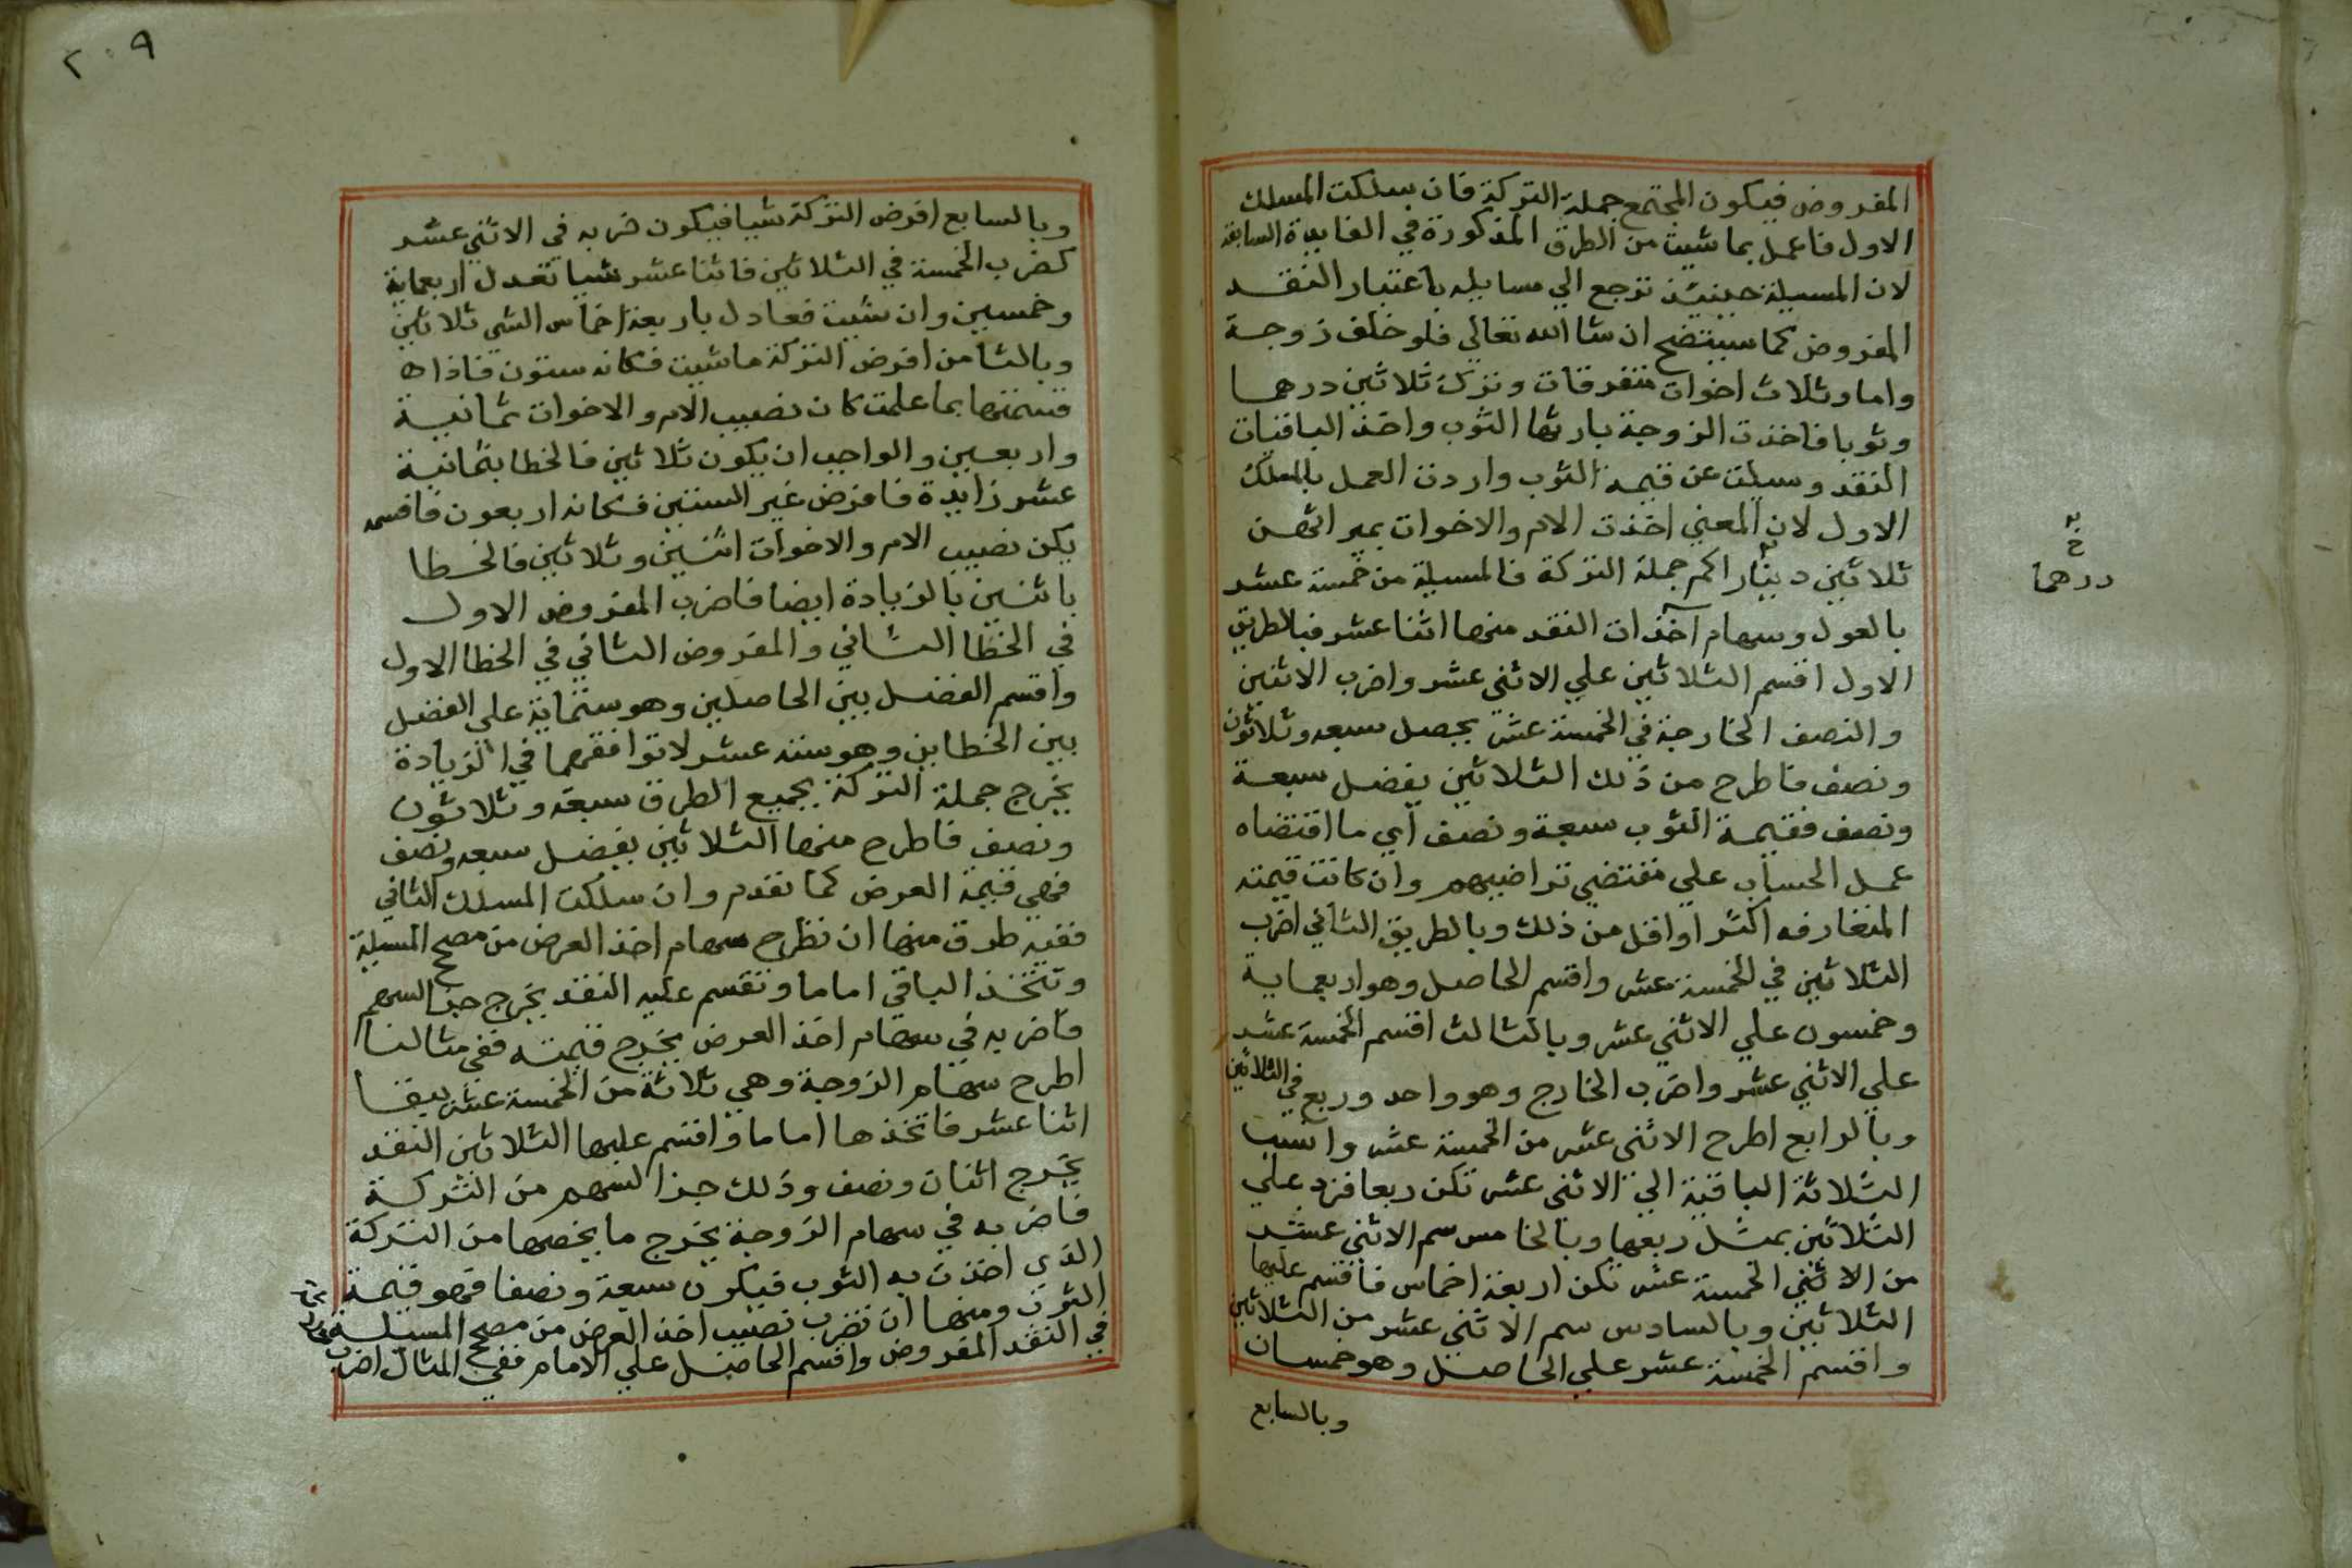 المفروض فيكون المجتمع جملة التركة فان سلكت المسلك
الاول فاعمل بما شيت من الطرق المذكورة في الفايدة السابقة
لان المسيلة حينيذ ترجع الي مسايله باعتبار النقد
المفروض كما سيتضح ان شا الله تعالي فلو خلف زوجة
واما وثلاث اخوات متفرقات وترك ثلاثين درهما
وثوبا فاخذت الزوجة بارثها الثوب واخذ الباقيات
النقد وسيلت عن قيمة الثوب واردت العمل بالمسلك
الاول لان المعني اخذت الام والاخوات بميراثهن
ثلاثين دينارا كم جملة التركة فالمسيلة من خمسة عشر
بالعول وسهام آخذات النقد منها اثنا عشر فبالطريق
الاول اقسم الثلاثين علي الاثني عشر واضرب الاثنين
والنصف الخارجة في الخمسة عشر يحصل سبعه وثلاثون
ونصف فاطرح من ذلك الثلاثين يفضل سبعة
ونصف فقيمة الثوب سبعة ونصف اي ما اقتضاه
عمل الحساب علي مقتضي تراضيهم وان كانت قيمته
المتعارفه اكثر او اقل من ذلك وبالطريق الثاني اضرب
الثلاثين في الخمسة عشر واقسم الحاصل وهو اربعماية
وخمسون علي الاثني عشر وبالثالث اقسم الخمسة عشر
علي الاثني عشر واضرب الخارج وهو واحد وربع في الثلاثين
وبالرابع اطرح الاثني عشر من الخمسة عشر وانسب
الثلاثة الباقية الي الاثني عشر تكن ربعا فزد علي
الثلاثين بمثل ربعها وبالخامس سم الاثني عشر
من الاثني الخمسة عشر تكن اربعة اخماس فاقسم عليها
الثلاثين وبالسادس سم الاثني عشر من الثلاثين
واقسم الخمسة عشر علي الحاصل وهو خمسان
وبالسابع
خ
درهما
٢٠٩
وبالسابع افرض التركة شيا فيكون ضربه في الاثني عشر
كضرب الخمسة في الثلاثين فاثنا عشر شيا تعدل اربعماية
وخمسين وان شيت فعادل باربعة اخماس الشي ثلاثين
وبالثامن افرض التركة ما شيت فكانه ستون فاذا
قسمتها بما علمت كان نصيب الام والاخوات ثمانية
واربعين والواجب ان يكون ثلاثين فالخطا بثمانية
عشر زايدة فافرض غير الستين فكانه اربعون فاقسمه
يكن نصيب الام والاخوات اثنين وثلاثين فالخطا
باثنين بالزيادة ايضا فاضرب المفروض الاول
في الخطا الثاني والمفروض الثاني في الخطا الاول
واقسم الفضل بين الحاصلين وهو ستماية علي الفضل
بين الخطاين وهو ستة عشر لاتوافقهما في الزيادة
يخرج جملة التركة بجميع الطرق سبعة وثلاثون
ونصف فاطرح منها الثلاثين يفضل سبعه ونصف
فهي قيمة العرض كما تقدم وان سلكت المسلك الثاني
ففيه طرق منها ان تطرح سهام اخذ العرض من مصحح المسيلة
وتتخذ الباقي اماما وتقسم عليه النقد يخرج جزا السهم
فاضربه في سهام اخذ العرض يخرج قيمته ففي مثالنا
اطرح سهام الزوجة وهي ثلاثة من الخمسة عشر يبقا
اثنا عشر فاتخذها اماما واقسم عليها الثلاثين النقد
يخرج اثنان ونصف وذلك جزا السهم من التركة
فاضربه في سهام الزوجة يخرج ما يخصها من التركة
الذي اخذت به الثوب فيكون سبعة ونصفا فهو قيمة
الثوب ومنها ان تضرب نصيب اخذ العرض من مصحح المسيلة
في النقد المفروض واقسم الحاصل علي الامام ففي المثال اضرب